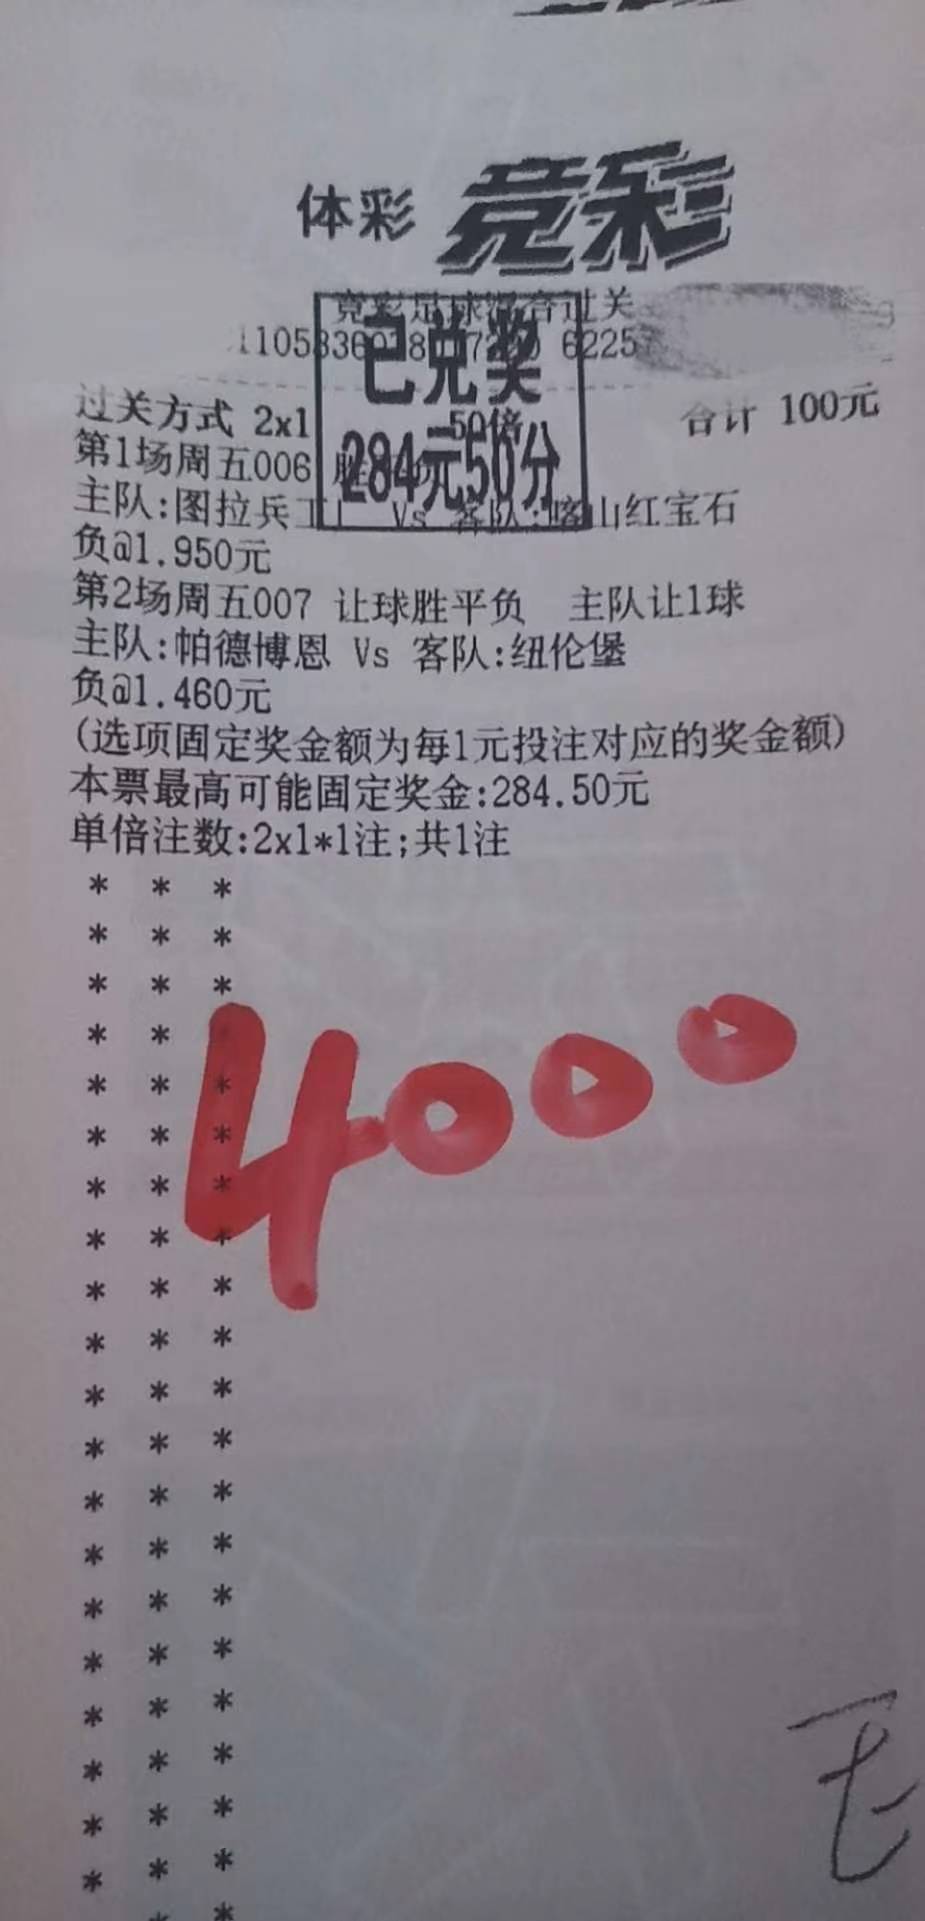 体彩 竞彩
竞彩足球混合过关
已兑奖
284元50分
过关方式 2x1 50倍 合计 100元
第1场周五006
主队:图拉兵工厂 Vs 客队:喀山红宝石
负@1.950元
第2场周五007 让球胜平负 主队让1球
主队:帕德博恩 Vs 客队:纽伦堡
负@1.460元
(选项固定奖金额为每1元投注对应的奖金额)
本票最高可能固定奖金:284.50元
单倍注数:2x1*1注;共1注
* * *
* * *
* * *
* * *
* * *
* * *
* * *
* * *
* * *
* * *
* * *
* * *
* * *
* * *
* * *
* * *
* * *
* * *
* * *
* * *
* *
4000